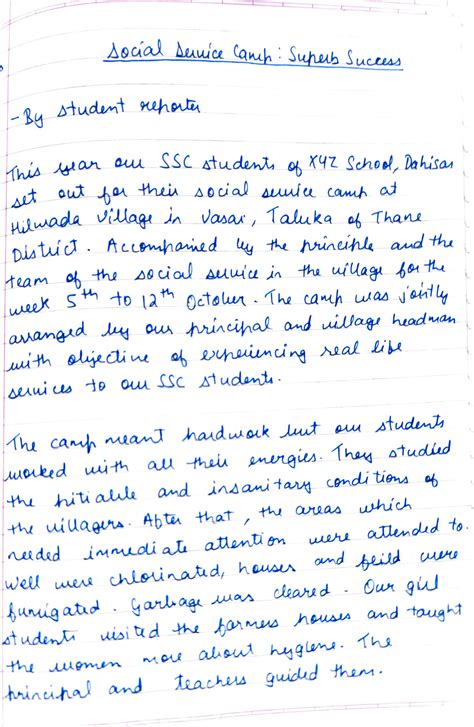 Social Service Camp : Superb Success
- By student reporter
This year our SSC students of XYZ School, Dahisar
set out for their social service camp at
Hilwada Village in Vasai, Taluka of Thane
District. Accompanied by the principle and the
team of the social service in the village for the
week 5th to 12th October. The camp was jointly
arranged by our principal and village headman
with objective of experiencing real life
services to our SSC students.
The camp meant hardwork but our students
worked with all their energies. They studied
the pitiable and insanitary conditions of
the villagers. After that, the areas which
needed immediate attention were attended to.
Well were chlorinated, houses and feild were
fumigated. Garbage was cleared. Our girl
students visited the farmers houses and taught
the women more about hygiene. The
principal and teachers guided them.